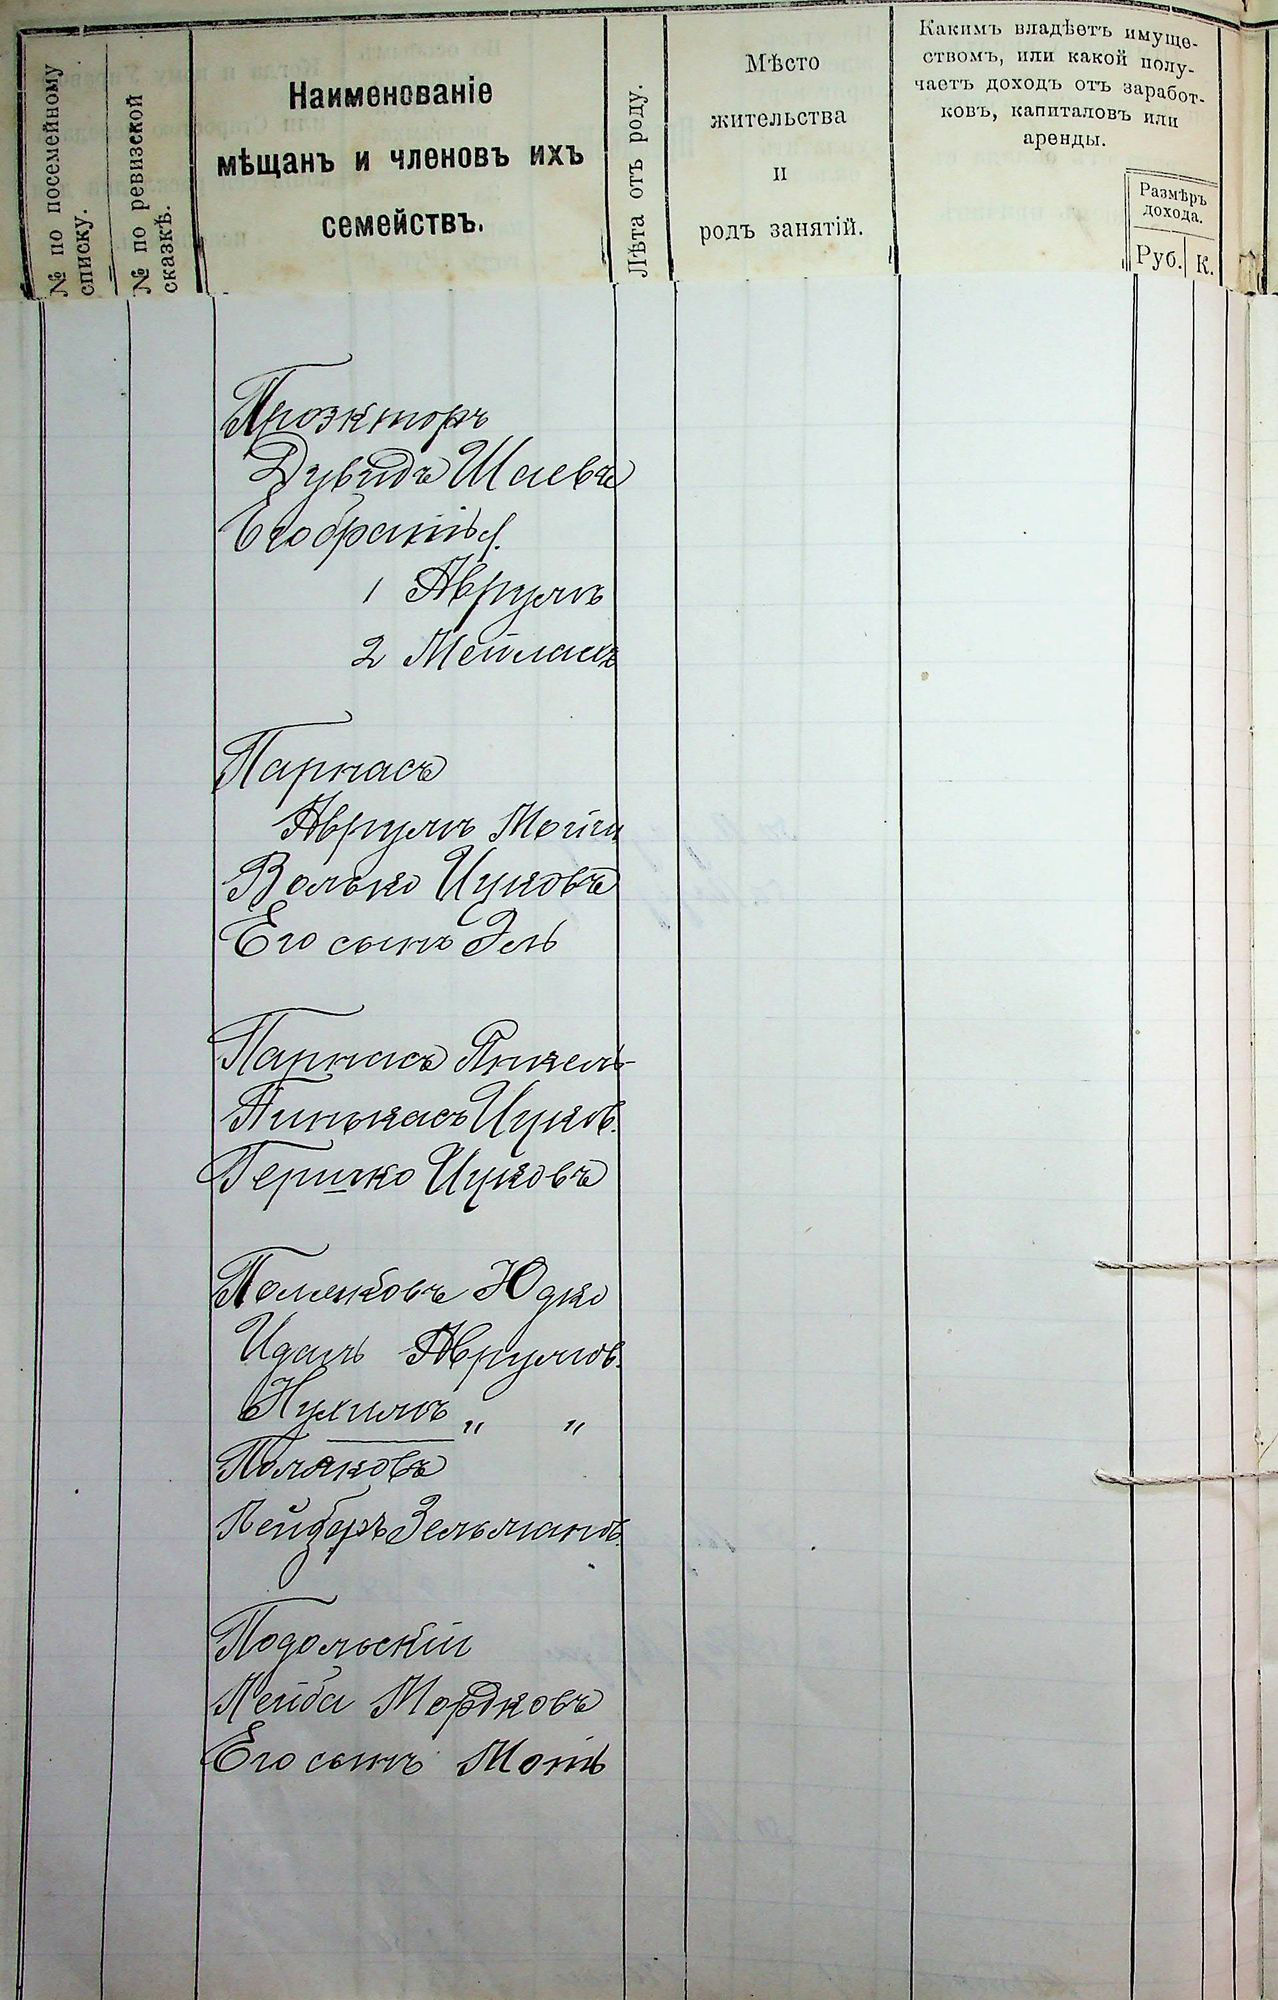 № по посемейному
списку.
№ по ревизской
сказкѣ.
Наименованіе
мѣщанъ и членовъ ихъ
семействъ.
Лѣта отъ роду.
Мѣсто
жительства
и
родъ занятій.
Какимъ владѣетъ имуще-
ствомъ, или какой полу-
чаетъ доходъ отъ заработ-
ковъ, капиталовъ или
аренды.
Размѣръ
дохода.
Руб. К.
Прозкторъ
Дувидъ Шаевъ
Его братья
1 Аврумъ
2 Мейлахъ
Парнасъ
Аврумъ
Волько Ицковъ
Его сынъ Эль
Парнасъ Янкель
Пинькасъ Ицков.
Гершко Ицковъ
Юдко
Аврумов.
Нухимъ „ „
Поляковъ
Лейзеръ Зельманов.
Подольскій
Лейба Мордковъ
Его сынъ